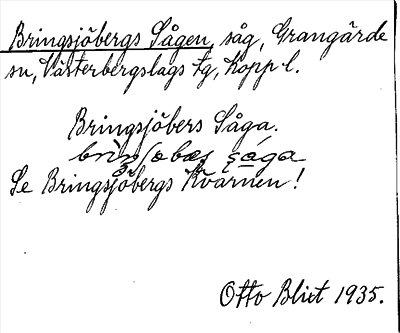 Bringsjöbergs Sågen, såg, Grangärde
sn, Västerbergslags tg, Kopp. l.
Bringsjöbers Såga.
Se Bringsjöbergs Kvarnen!
Otto Blixt 1935.